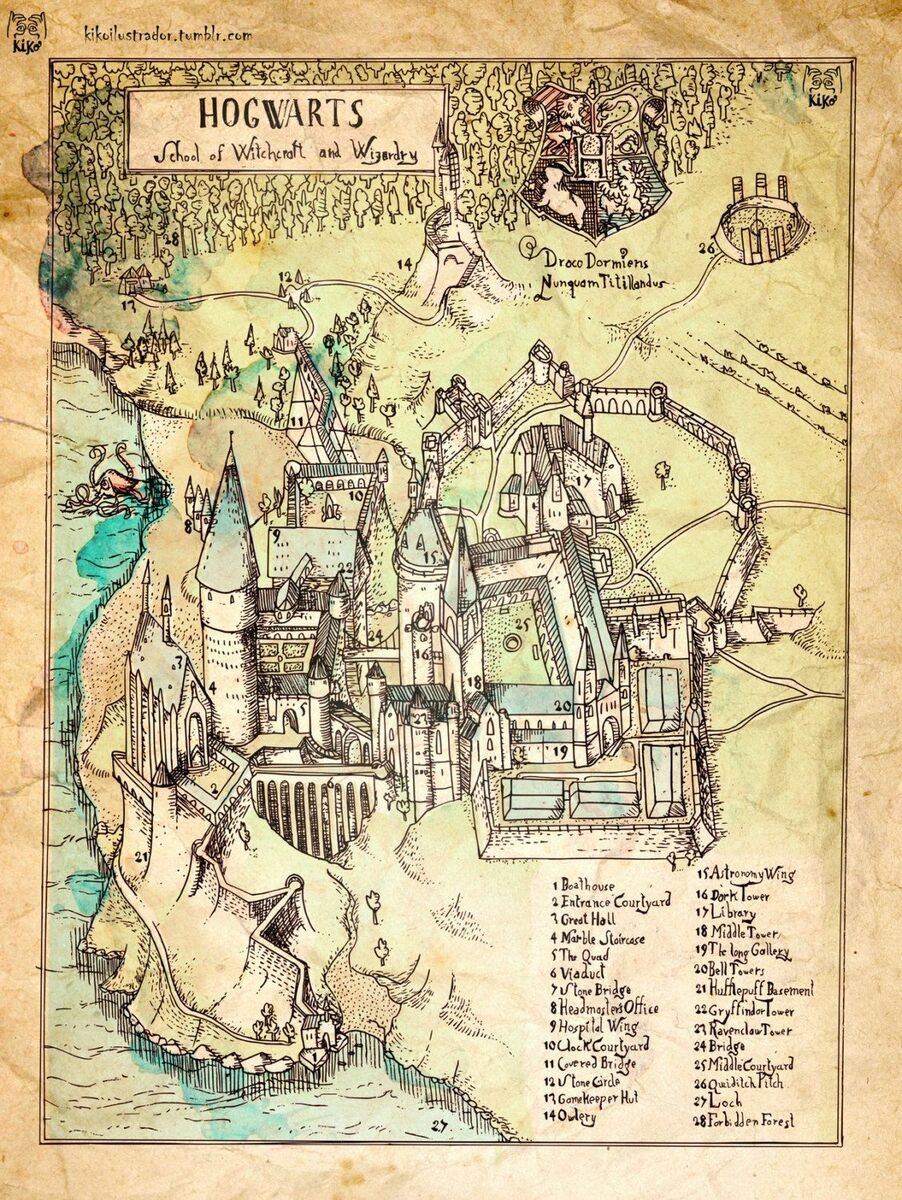 KiKo
kikoilustrador.tumblr.com
KiKo
HOGWARTS
School of Witchcraft and Wizardry
H
Draco Dormiens
Nunquam Titillandus
28
13
12
14
26
11
10
17
8
9
15
22
25
24
16
3
4
18
5
23
20
19
2
21
27
1 Boathouse
2 Entrance Courtyard
3 Great Hall
4 Marble Staircase
5 The Quad
6 Viaduct
7 Stone Bridge
8 Headmasters Office
9 Hospital Wing
10 Clock Courtyard
11 Covered Bridge
12 Stone Circle
13 GameKeeper Hut
14 Owlery
15 Astronomy Wing
16 Dark Tower
17 Library
18 Middle Tower
19 The long Gallery
20 Bell Towers
21 Hufflepuff Basement
22 Gryffindor Tower
23 Ravenclaw Tower
24 Bridge
25 Middle Courtyard
26 Quiditch Pitch
27 Loch
28 Forbidden Forest